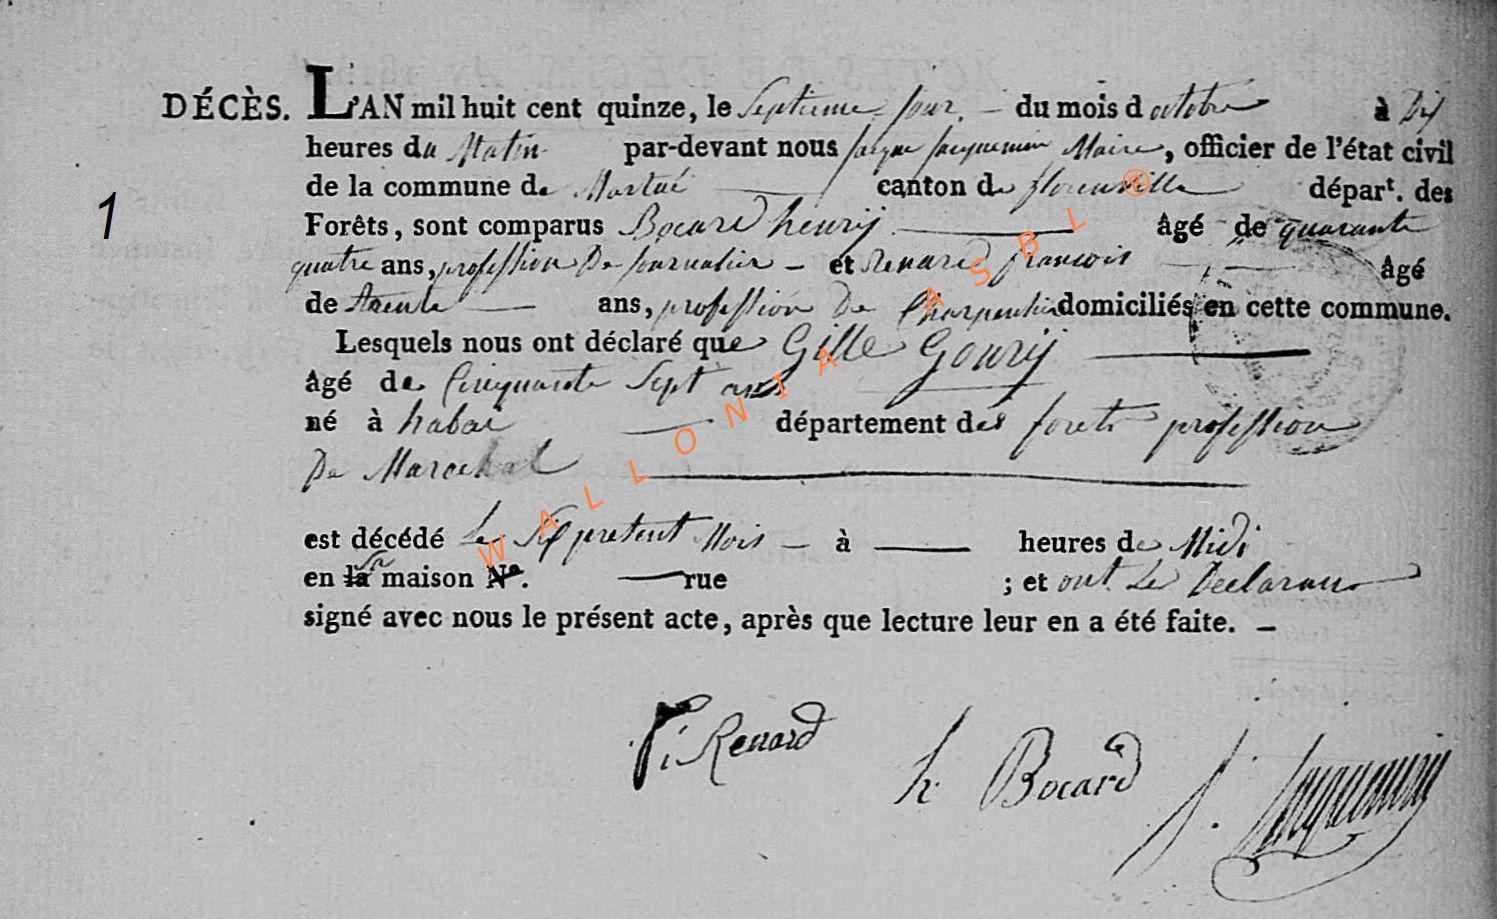 DÉCÈS. L'AN mil huit cent quinze, le Septieme Jour du mois d octobre à Dix
heures du Matin par-devant nous Jacque Jacquemin Maire, officier de l'état civil
de la commune de Martué canton de florenville départ. des
1
Forêts, sont comparus Bocard henrÿ âgé de quarante
quatre ans, profession De Journalier et Renard francois âgé
de trente ans, profession De Charpentier domiciliés en cette commune.
Lesquels nous ont déclaré que Gille Gourÿ
âgé de Cinquante Sept ans
né à habai département des forets profession
De Marechal
est décédé Le Six present Mois à heures de Midi
en la sa maison N°. rue ; et ont Les Declarans
signé avec nous le présent acte, après que lecture leur en a été faite.
Renard
h Bocard
J. Jacquemin
WALLONIA ASBL ®